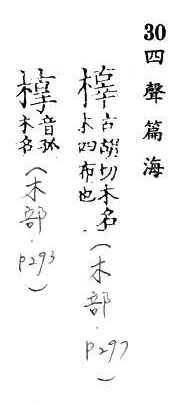 30 四聲篇海
橭 古胡切木名
木四布也 (木部.P297)
音孤
木名 (木部.P293)